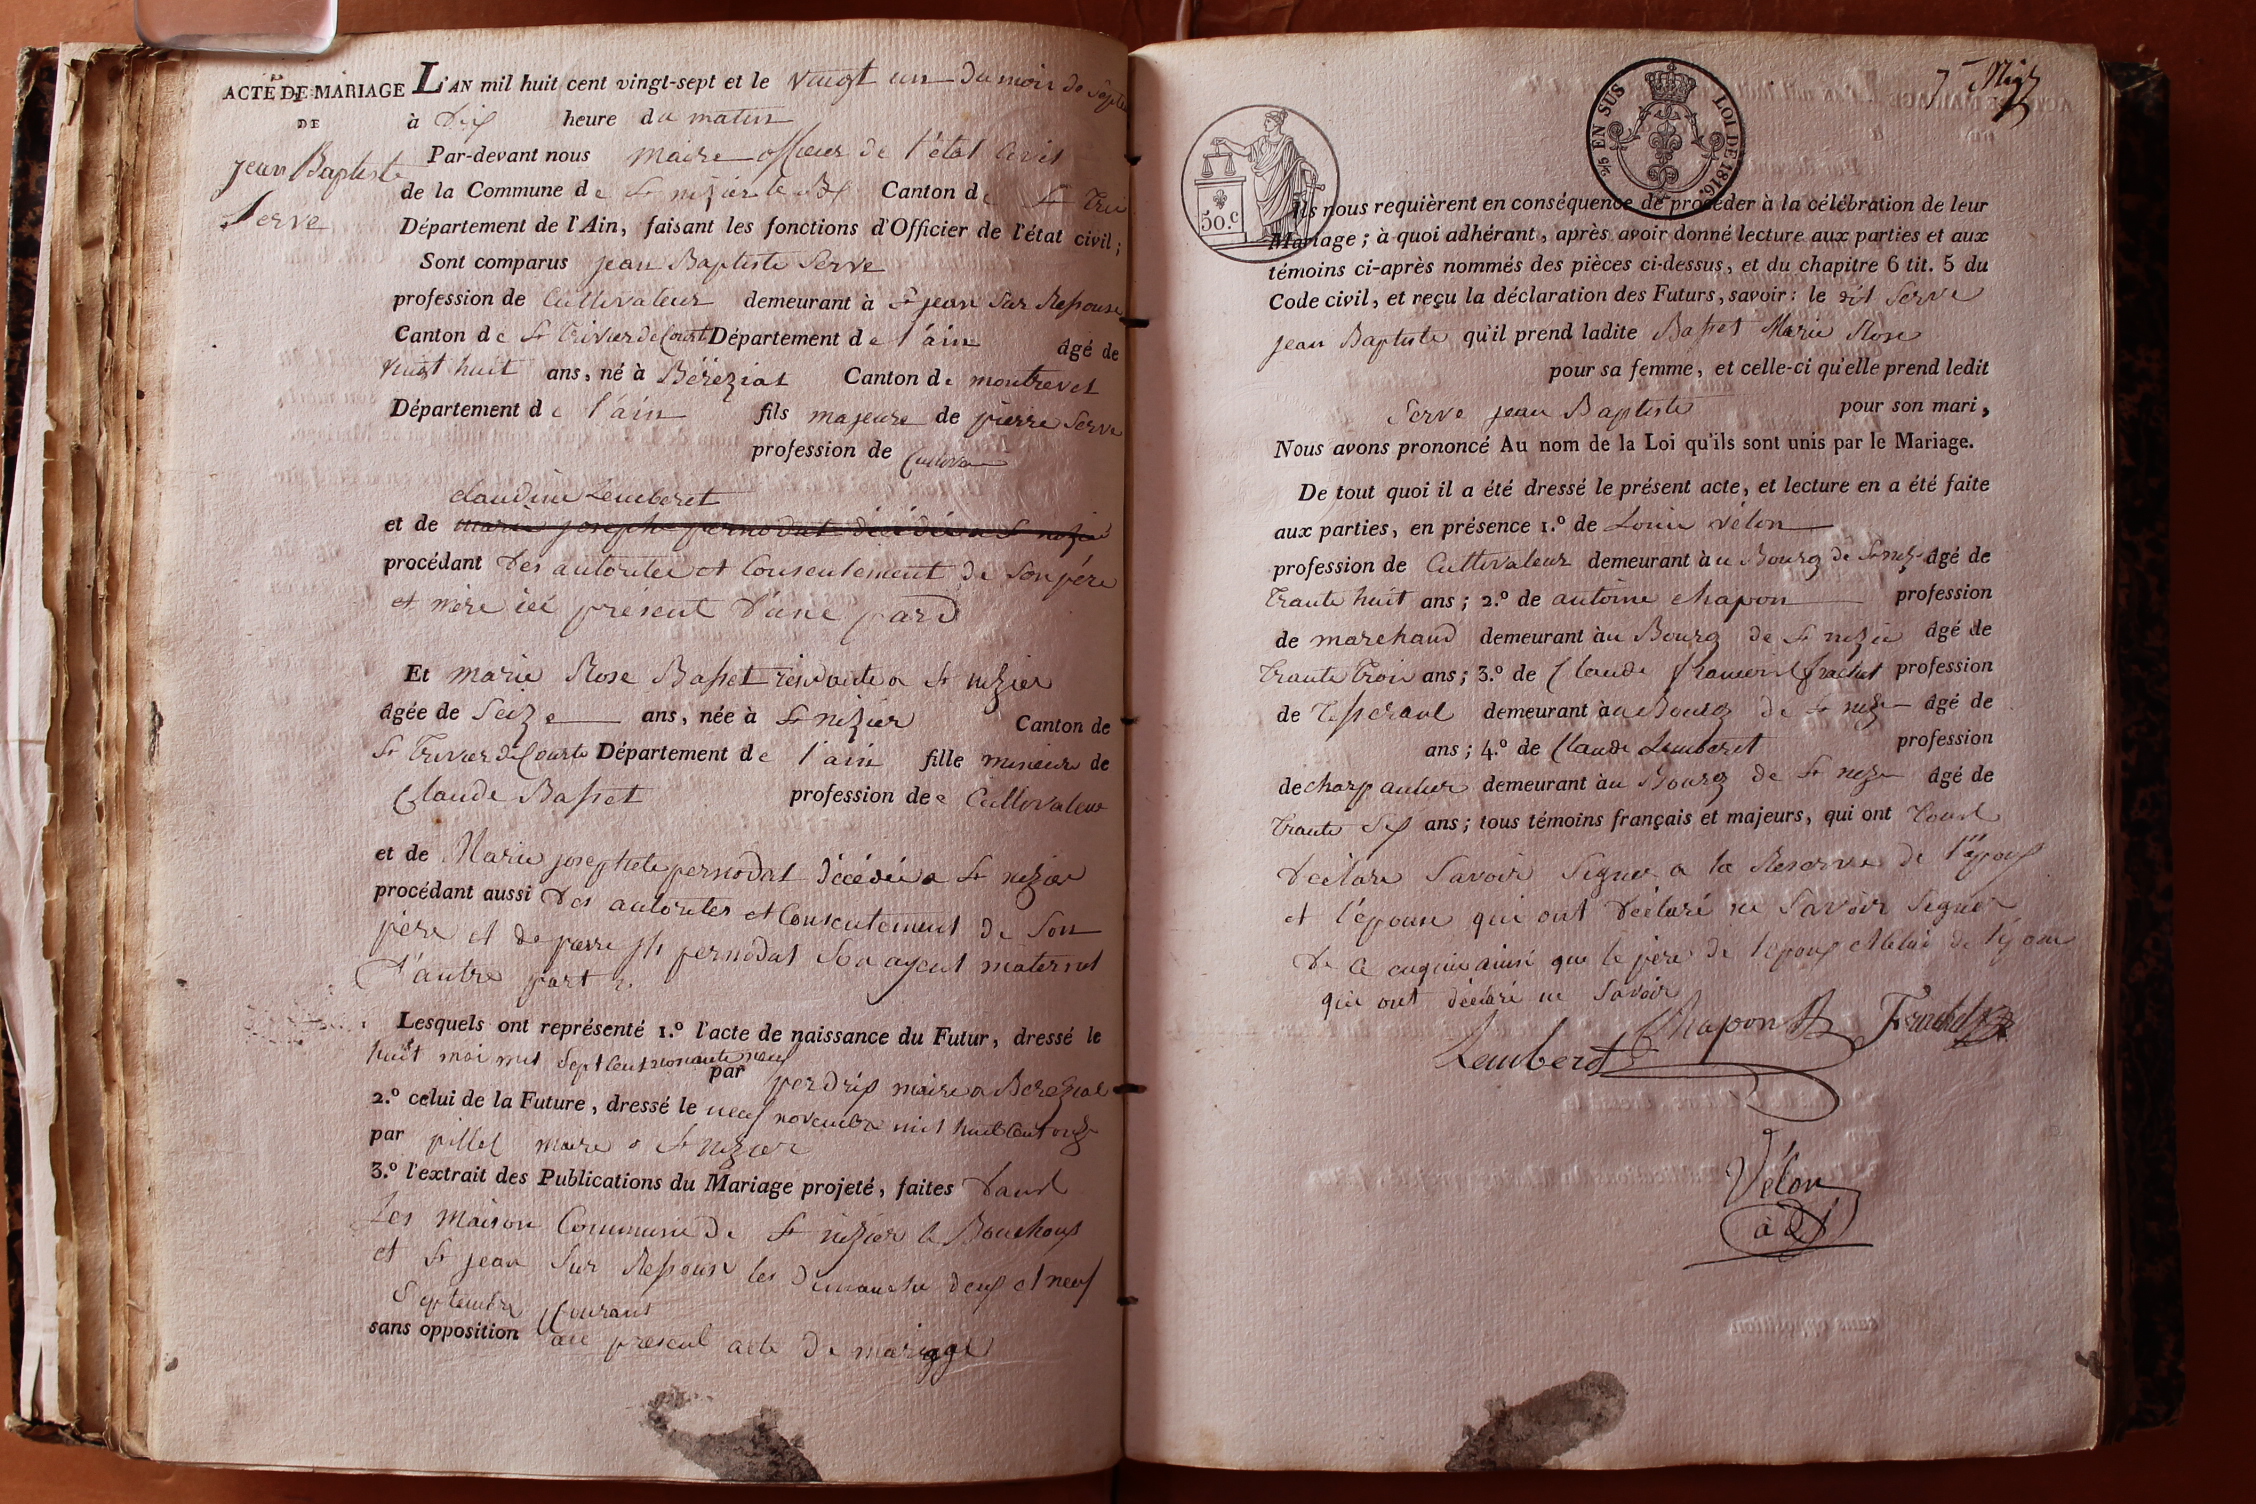 ACTE DE MARIAGE
DE
jean Baptiste
Serve
L'AN mil huit cent vingt-sept et le vingt un du mois de septe
à dix heure du matin
Par-devant nous maire officier de l'état Civil
de la Commune de St nizier le Bx Canton de St Tri
Département de l'Ain, faisant les fonctions d'Officier de l'état civil;
Sont comparus jean Baptiste Serve
profession de Cultivateur demeurant à St jean sur Ressouse
Canton de St Trivier de Court Département de l'ain âgé de
vingt huit ans, né à Béréziat Canton de montrevel
Département de l'ain fils majeure de pierre Serve
profession de Cultiva
claudine Lemberet
et de marie josephe pernodat décédée a St nizier
procédant des autorités et Consentement de Son père
et mère ici présent d'une pard
Et marie Rose Basset résidante a St nizier
âgée de Seize ans, née à St nizier Canton de
St Trivier de Courte Département de l'ain fille mineure de
Claude Basset profession de e Cultivateur
et de Marie josephete pernodat décédée a St nizier
procédant aussi des autorités et Consentement de Son
père et de pierre jh pernodat Son ayeul maternel
d'autre part
Lesquels ont représenté 1.º l'acte de naissance du Futur, dressé le
huit mai mil Sept Cent nonante neuf
par perdrix maire a Bereziat
2.º celui de la Future, dressé le neuf novembre mil huit Cent onze
par pillet maire a St nizier
3.º l'extrait des Publications du Mariage projeté, faites dans
Les maison Commune de St nizier le Bouchoux
et St jean Sur Ressouse les dimanche deux et neuf
Septembre Courant
sans opposition au présent acte de mariage
EN SUS LOI DE 1816.
50.c
Ils nous requièrent en conséquence de procéder à la célébration de leur
Mariage; à quoi adhérant, après avoir donné lecture aux parties et aux
témoins ci-après nommés des pièces ci-dessus, et du chapitre 6 tit. 5 du
Code civil, et reçu la déclaration des Futurs, savoir: le dit Serve
jean Baptiste qu'il prend ladite Basset Marie Rose
pour sa femme, et celle-ci qu'elle prend ledit
Serve jean Baptiste pour son mari,
Nous avons prononcé Au nom de la Loi qu'ils sont unis par le Mariage.
De tout quoi il a été dressé le présent acte, et lecture en a été faite
aux parties, en présence 1.º de Louis vélon
profession de Cultivateur demeurant à u Bourg de St niz âgé de
Trante huit ans; 2.º de antoine chapon profession
de marchand demeurant à u Bourg de St nizie âgé de
Trante Trois ans; 3.º de Claude frachet profession
de demeurant à u Bourg de St niz âgé de
ans; 4.º de Claude Lemberet profession
de charpantier demeurant à u Bourg de St nizie âgé de
Trante Six ans; tous témoins français et majeurs, qui ont Tous
déclare Savoir Signer a la Reserve de l'epoux
et l'epouse qui ont déclaré ne Savoir Signer
de ce enquis ainsi que le père de l'epoux et celui de l'épouse
qui ont déclaré ne Savoir
Lemberet Chapon Frachet
Vélon